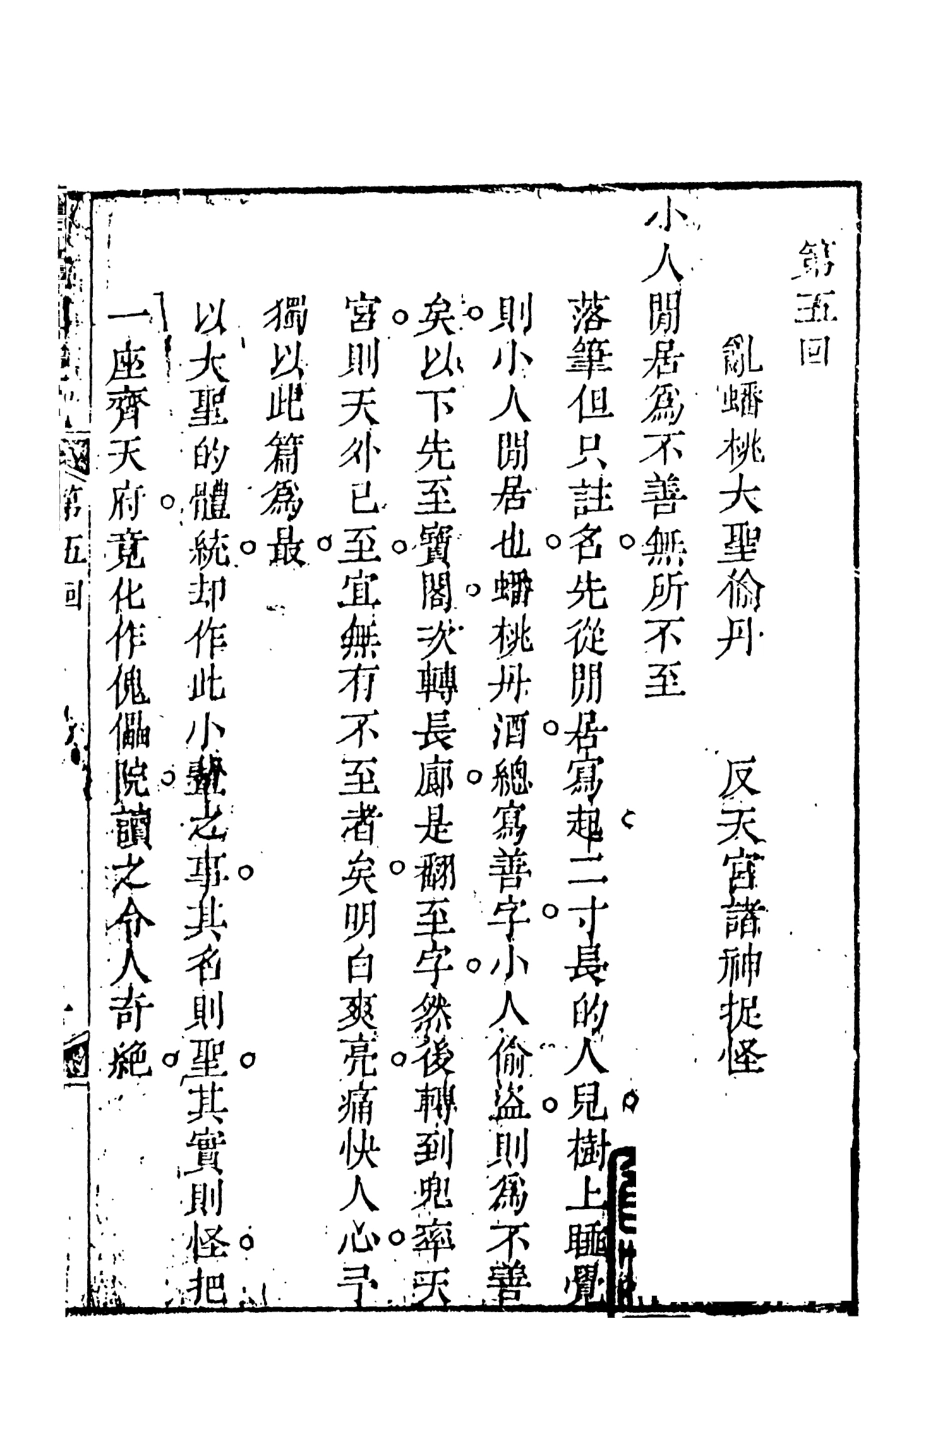 第五回
亂蟠桃大聖偷丹　反天宮諸神捉怪
小人閒居爲不善無所不至
落筆但只註名先從閒居寫起二寸長的人兒樹上睡覺
則小人閒居也蟠桃丹酒總寫善字小人偷盜則爲不善
矣以下先至寶閣次轉長廊是翻至字然後轉到兜率天
宮則天外已至宜無有不至者矣明白爽亮痛快人心予
獨以此篇爲最
以大聖的體統却作此小之事其名則聖其實則怪把
一座齊天府竟化作傀儡院讀之令人奇絕
第五回